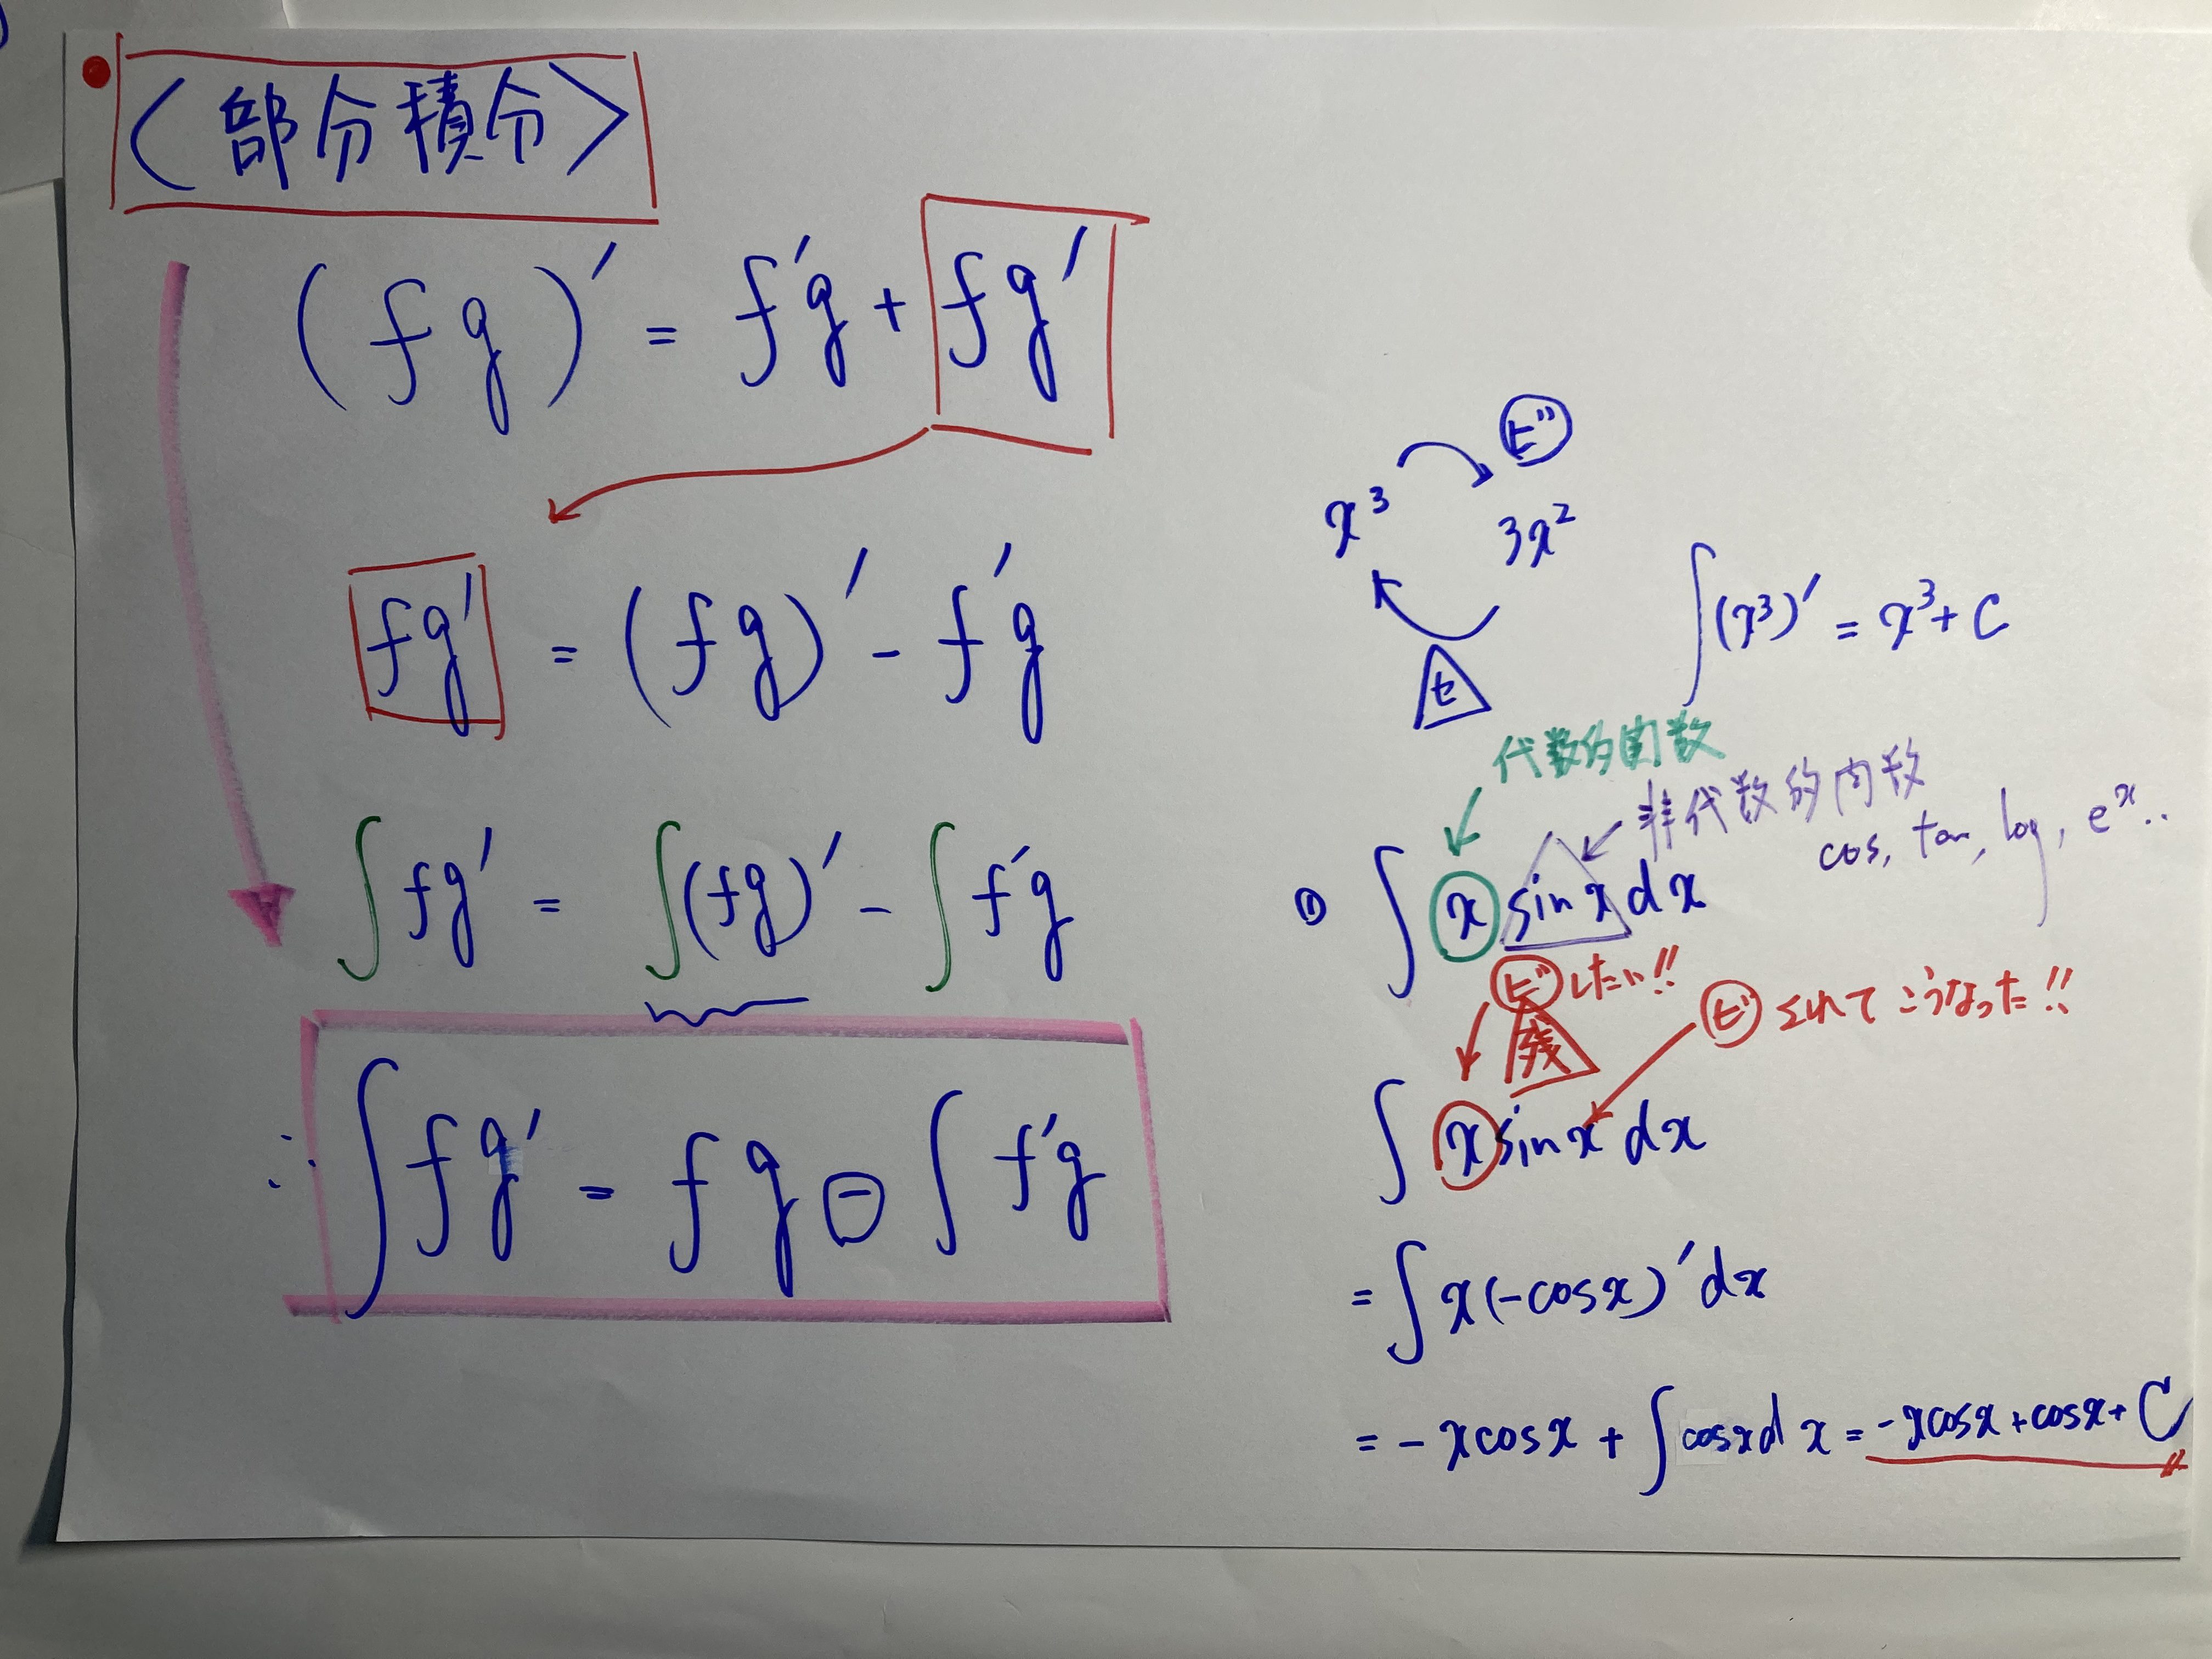 〈部分積分〉
(fg)′ = f′g + fg′
fg′ = (fg)′ - f′g
∫fg′ = ∫(fg)′ - ∫f′g
∴ ∫fg′ = fg ⊖ ∫f′g
ビ
x³ 3x²
セ
∫(x³)′ = x³ + C
代数的関数
非代数的関数
cos, tan, log, eˣ..
① ∫x sinx dx
ビしたい!!
残
ビされてこうなった!!
∫x sinx dx
= ∫x(-cosx)′dx
= -xcosx + ∫cosxdx = -xcosx + cosx + C